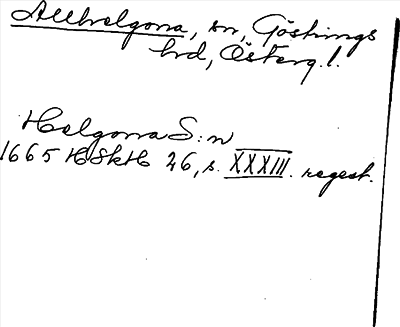 Allhelgona, sn, Göstrings
hrd, Österg.l.
Helgona S:n
1665 HSkH 26, s. XXXIII. regest.